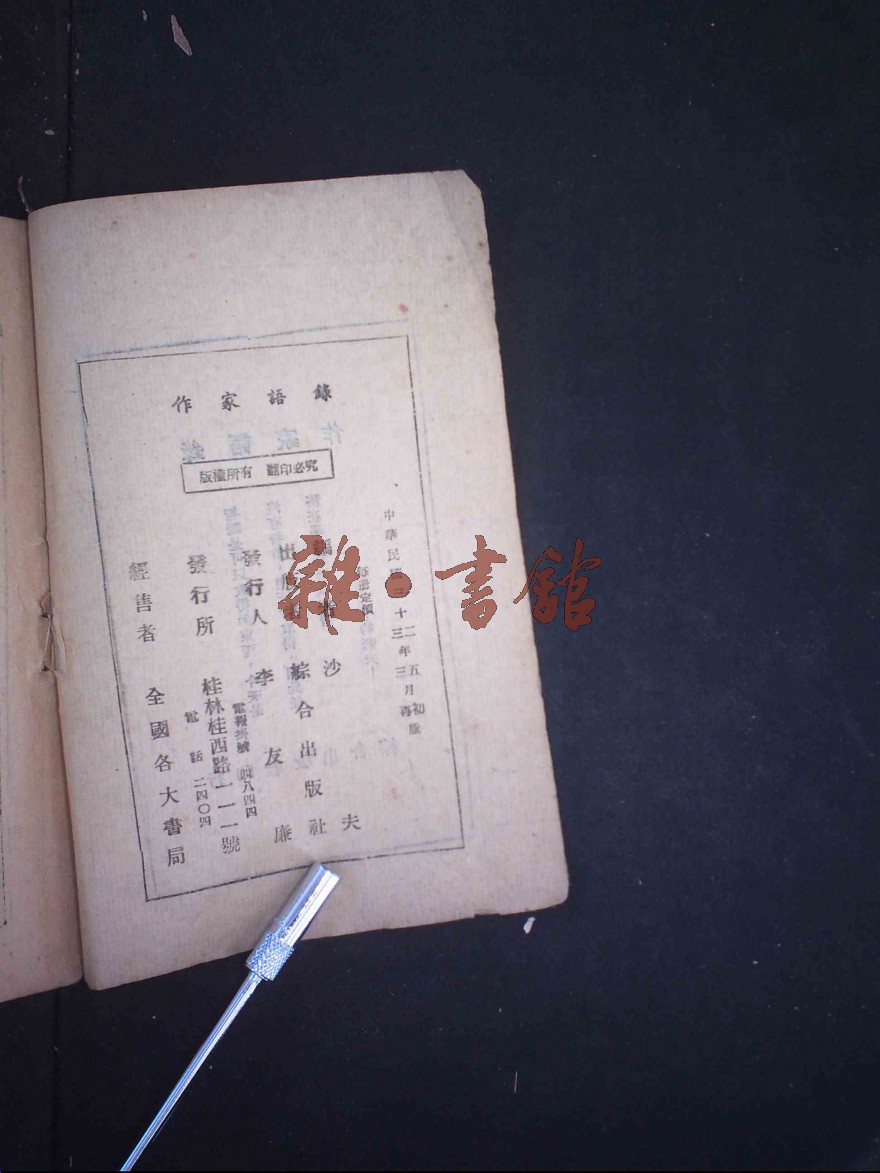 作家語錄
版權所有 翻印必究
中華民國三十二年五月初版
三十三年三月再版
每冊定價
沙夫
出版 綜合出版社
發行人 李友廉
發行所 桂林桂西路一一一號
電報掛號 四八四四
電話 二四〇四
經售者 全國各大書局
雜·書館